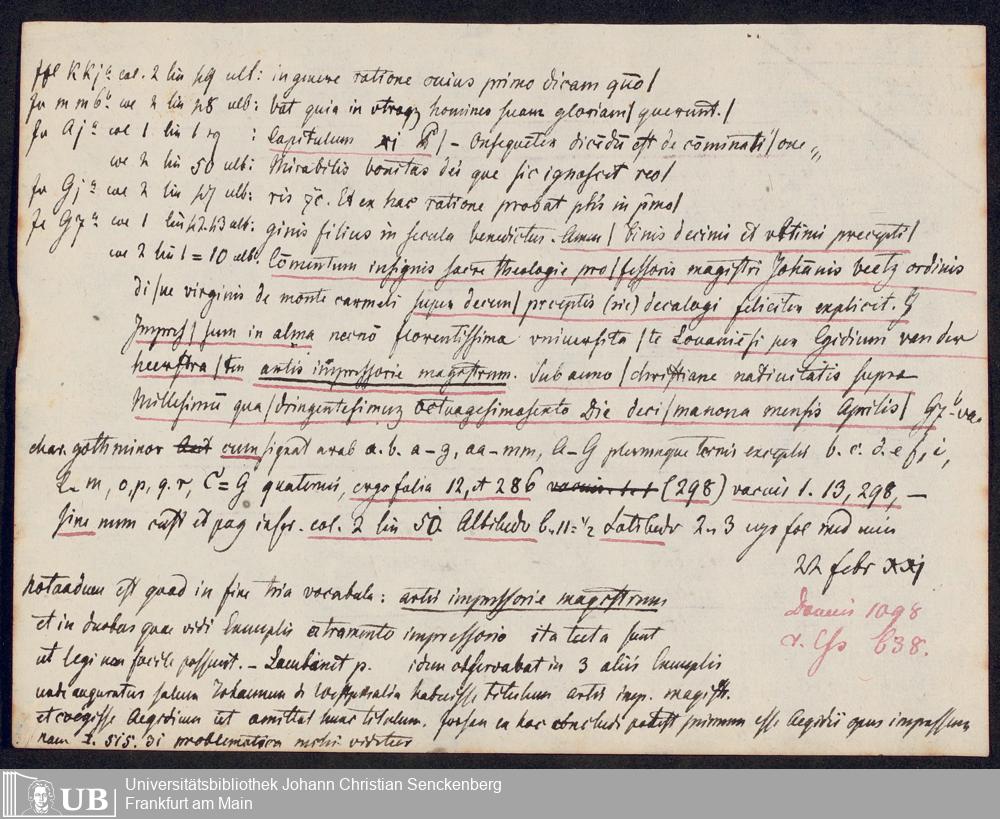 fol KKjª col. 2 lin 49 ult: in genere ratione cuius primo dicam quō/
fu m m 6ᵇ col 2 lin 48 ulb: bat quia in utraqȝ homines suam gloriam/ querunt./
fu Ajª col 1 lin 1 rg : Capitulum xi / - Onsequēter dicēdū est de cōminati/one„
col 2 lin 50 ulb: Mirabilis bonitas dei que sic ignoscit reo/
fu Gjª col 2 lin 47 ulb: ris ⁊c̄. Et ex hac ratione probat phs in pmo/
fu G7ª col 1 lin 42.43 ulb: ginis filius in secula benedictus. Amen/ Einis decimi et vltimi precepti/
col 2 lin 1=10 ulb. Cōmentum insignis sacre theologie pro/fessoris magistri Johānis beetz ordinis
di/ue virginis de monte carmeli super decem/ preceptis (sic) decalogi feliciter explicit.
Impres/sum in alma necnō florentissima vniuersita/te Louaniēsi per Egidium van der
heerstra/ten artis impressorie magistrum. Sub anno/ christiane natiuitatis supra
Millesimū qua/dringentesimuȝ octuagesimosexto Die deci/manona mensis Aprilis/ G7ᵇ va.
char. goth minor cum signat arab a.b. a-g, aa-mm, A-G plerumque ternis exceptis b. c. d. e f, i,
l-m, o, p, q. r, C=G quaternis, ergo folia 12, et 286 (298) vacuis 1. 13, 298, —
sine num cust et pag infr. col. 2 lin 50 Altitudo 6.11=½ Latitudo 2..3 fol med min
22 febr xxj
notandum est quod in fine tria vocabula: artis impressorie magistrum
et in duobus quae vidi Exemplis atramento impressorio ita tecta sunt
ut legi non facile possunt. - Lambinet p. idem observabat in 3 aliis Exemplis
unde auguratur solum Johannem de Westphalia habuisse titulum artis imp. magistr.
et coegisse Aegidium ut omittat hunc titulum. forsan ex hac concludi potest primum esse Aegidii opus impressum
nam problematica mihi videtur
1098
638.
Universitätsbibliothek Johann Christian Senckenberg
Frankfurt am Main
UB